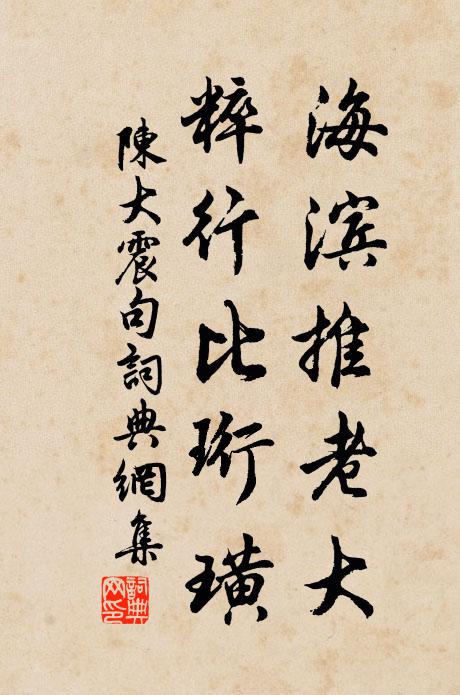 海滨推老大
粹行比珩璜
陳大震句詞典網集
詞典
网印